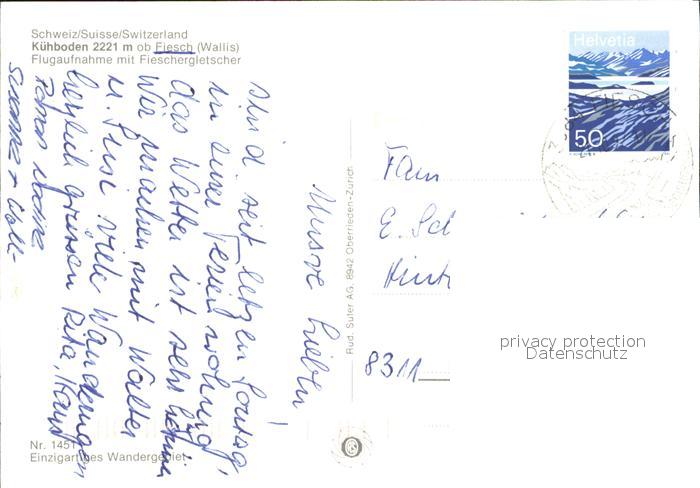 Schweiz/Suisse/Switzerland
Kühboden 2221 m ob Fiesch (Wallis)
Flugaufnahme mit Fieschergletscher
Unsre Lieben!
Sind seit letzten Sontag,
in einer Ferienwohnung,
das Wetter ist sehr
Wir machen mit Walter
u. viele Wanderungen
herzlich grüssen Rita, Hans
Susanne +
Nr. 1451
Einzigartiges Wandergebiet
Rud. Suter AG, 8942 Oberrieden-Zürich
Helvetia
50
Fam
E. Sch
8311
privacy protection
Datenschutz